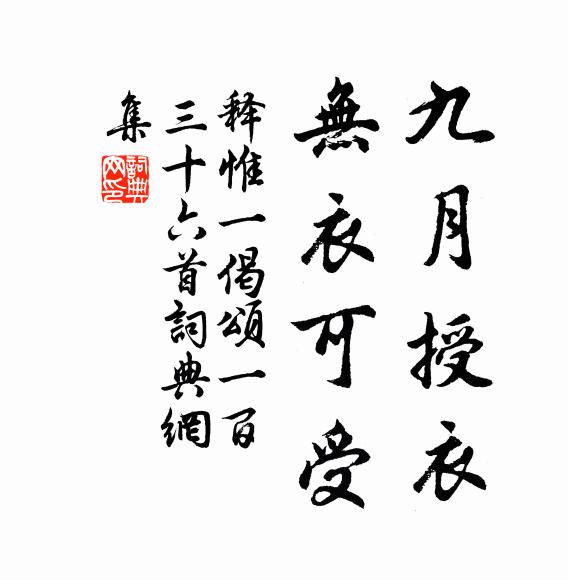 九月授衣
無衣可受
释惟一偈頌一百
三十六首詞典網
集
詞典
网印